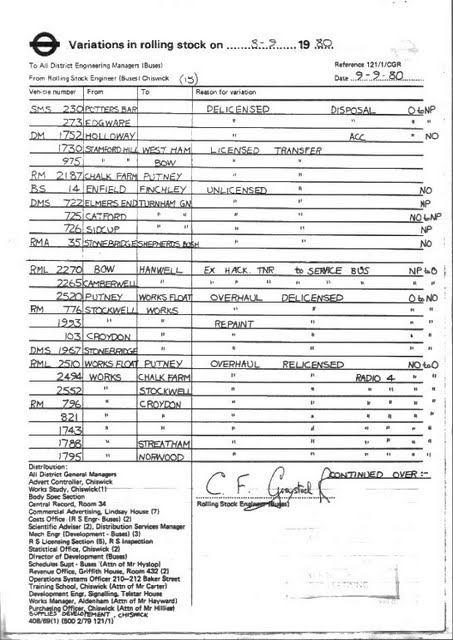 Variations in rolling stock on ........8-9........19 80.
To All District Engineering Managers (Buses) Reference 121/1/CGR
From Rolling Stock Engineer (Buses) Chiswick (15) Date 9-9-80
Vehicle number From To Reason for variation
SMS 230 POTTERS BAR DELICENSED DISPOSAL O to NP
273 EDGWARE " " " "
DM 1752 HOLLOWAY " ACC " NO
1730 STAMFORD HILL WEST HAM LICENSED TRANSFER
975 " " BOW " "
RM 2187 CHALK FARM PUTNEY " "
BS 14 ENFIELD FINCHLEY UNLICENSED " NO
DMS 722 ELMERS END TURNHAM GN " " NP
725 CATFORD " " " " NO to NP
726 SIDCUP " " " " NP
RMA 35 STONEBRIDGE SHEPHERDS BUSH " " NO
RML 2270 BOW HANWELL EX HACK. TNR to SERVICE BUS NP to O
2265 CAMBERWELL " " " " " " " " "
2520 PUTNEY WORKS FLOAT OVERHAUL DELICENSED O to NO
RM 776 STOCKWELL WORKS " " " "
1993 " " REPAINT " " "
103 CROYDON " " " " "
DMS 1967 STONEBRIDGE " " " " "
RML 2510 WORKS FLOAT PUTNEY OVERHAUL RELICENSED NO to O
2494 WORKS CHALK FARM " " RADIO 4 " "
2552 " STOCKWELL " " " " " "
RM 796 " CROYDON " " " " " "
821 " " " " " " " "
1743 " " " " " " " "
1788 " STREATHAM " " " "
1795 " NORWOOD " " " "
Distribution:
All District General Managers
Advert Controller, Chiswick
Works Study, Chiswick(1)
Body Spec Section
Central Record, Room 34
Commercial Advertising, Lindsay House (7)
Costs Office (R S Engr- Buses) (2)
Scientific Adviser (2), Distribution Services Manager
Mech Engr (Development - Buses) (3)
R S Licensing Section (5), R S Inspection
Statistical Office, Chiswick (2)
Director of Development (Buses)
Schedules Supt - Buses (Attn of Mr Hyslop)
Revenue Office, Griffith House, Room 432 (2)
Operations Systems Officer 210-212 Baker Street
Training School, Chiswick (Attn of Mr Carter)
Development Engr, Signalling, Telstar House
Works Manager, Aldenham (Attn of Mr Hayward)
Purchasing Officer, Chiswick (Attn of Mr Hillier)
SUPPLIES DEVELOPEMENT, CHISWICK
408/69(1) (500 2/79 121/1)
CONTINUED OVER :-
C. F.
Rolling Stock Engineer (Buses)